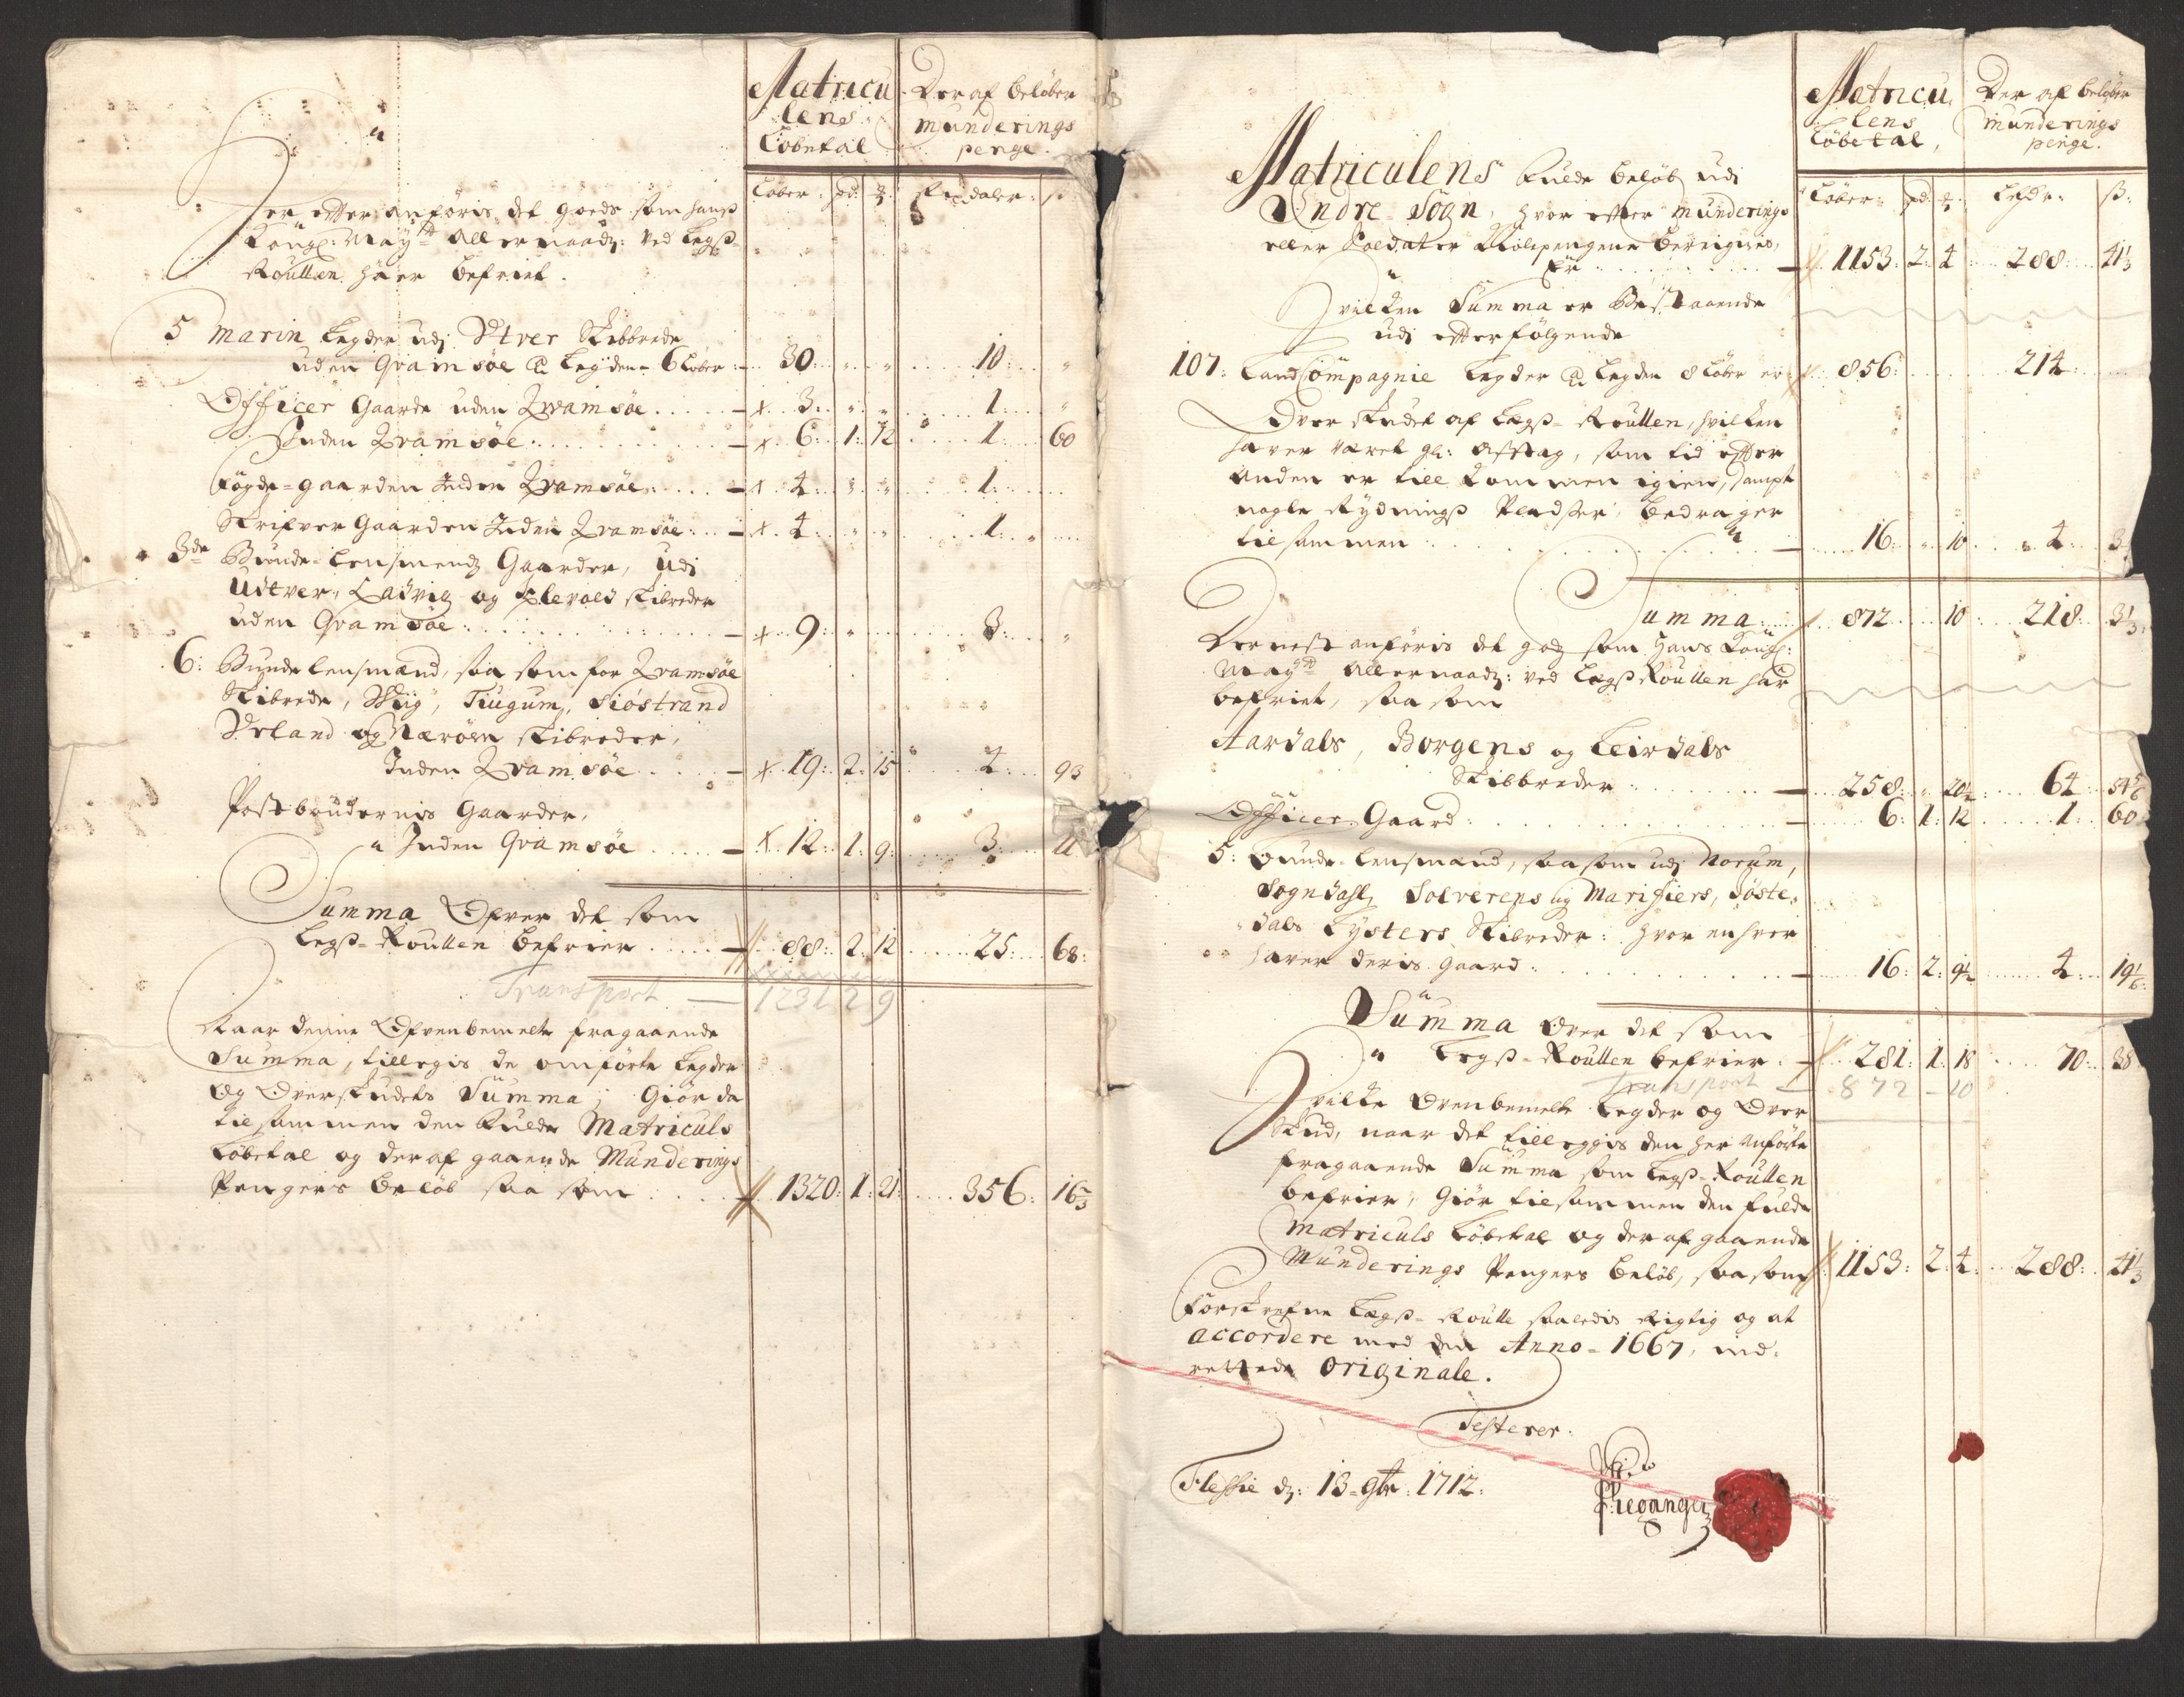 Matricu
lens
Løbetal
Der af beløber
munderings
penge.
Løber: pd: ℔: Rixdaler: ß
Her efter anføris det goeds som hans
Kongl: May:tt Allernaadg: ved Legß-
Roullen haer befriet.
5 Marin Legder udj Ytver Skibbrede
uden Qvamsøe @ Legden 6 Løber 30: " " 10: "
Officer Gaarde uden Qvamsøe x 3: " " 1: "
Inden Qvamsøe: x 6: 1: 12 1: 60
Fogde-gaarden Inden Qvamsøe: x 4: " " 1:
Skrifver Gaarden Inden Qvamsøe: x 4: " " 1: "
3de Bunde-Lensmends Gaarder, udi
Udtver, Ladvig og Klevold skibreder
uden Qvamsøe: x 9: " 3: "
6: Bunde lensmænd, saa som for Qvamsøe
Skibrede, Wiig, Tiugum, Siøstrand
Urland og Nærøen skibreder,
Inden Qvamsøe x 19: 2: 15 4: 93
Postbøndernis Gaarder,
Inden Qvamsøe x 12: 1: 9:  3: 11
Summa Ofver det som
Legß-Roullen befrier 88: 2: 12 25: 68:
Transport — 1231 2 9
Naar denne Ofvenbemelte fragaaende
Summa, tillegis de omførte Legder
og Overskudets Summa; Giør da
tilsammen den fulde Matriculs
Løbetal og der af gaaende Munderings
Pengers beløb saa som 1320: 1: 21: 356: 16 2/3
Matricu
lens
Løbetal,
Der af beløber
munderings
penge.
Løber: pd: ℔: Rixdr: ß:
Matriculens fulde beløb udi
Indre-Sogn, hvor efter munderings
eller Soldater Kolspengene bereignes,
Er 1153: 2: 4 288: 41 1/3
Hvilken Summa er bestaaende
udi efterfølgende
107: Land Compagnie Legder @ Legden 8 Løber er 856: 214:
Overskudet af Legß-Roullen, hvilken
haver været gl: Afftag, som tid efter
anden er till kommen igien, sampt
nogle Rydnings Pladser, bedrager
tilsammen 16: " 10 4: 3
Summa: 872 10: 218: 3 1/3:
Dernest anføris det gods som Hans Kongl:
May:tt Allernaadg: ved Legß Roullen har
befriet, saa som
Aardals, Borgens og Leirdals
Skibbreder 258: " 20 1/2 64 54 5/6
Officer Gaard: 6: 1: 12 1: 60
5: Bunde-lensmænd, saasom udi Norum,
Sogndahl, Solverens og Marifiers, Jøste-
dals Lysters Skibreder: hvor enhver
haver deris gaard: 16: 2: 9 1/2 4: 19 1/6:
Summa over det som
Legß-Roullen befrier: 281: 1: 18 70: 38
Transport — 872 – 10
Hvilke Ovenbemelte Legder og Over
skud, naar det tilleggis den her anførte
fragaaende Summa som Legß-Roullen
befrier, Giør tilsammen den fulde
Matriculs Løbetal og deraf gaaende
Munderings Pengers beløb, saasom 1153: 2: 4: 288: 41 1/3
Forskrefne Legß-Roulle saaledis Rigtig og at
accordere med den Anno-1667, ind-
rettede originale.
Testerer:
Flesche d: 13-9br: 1712: